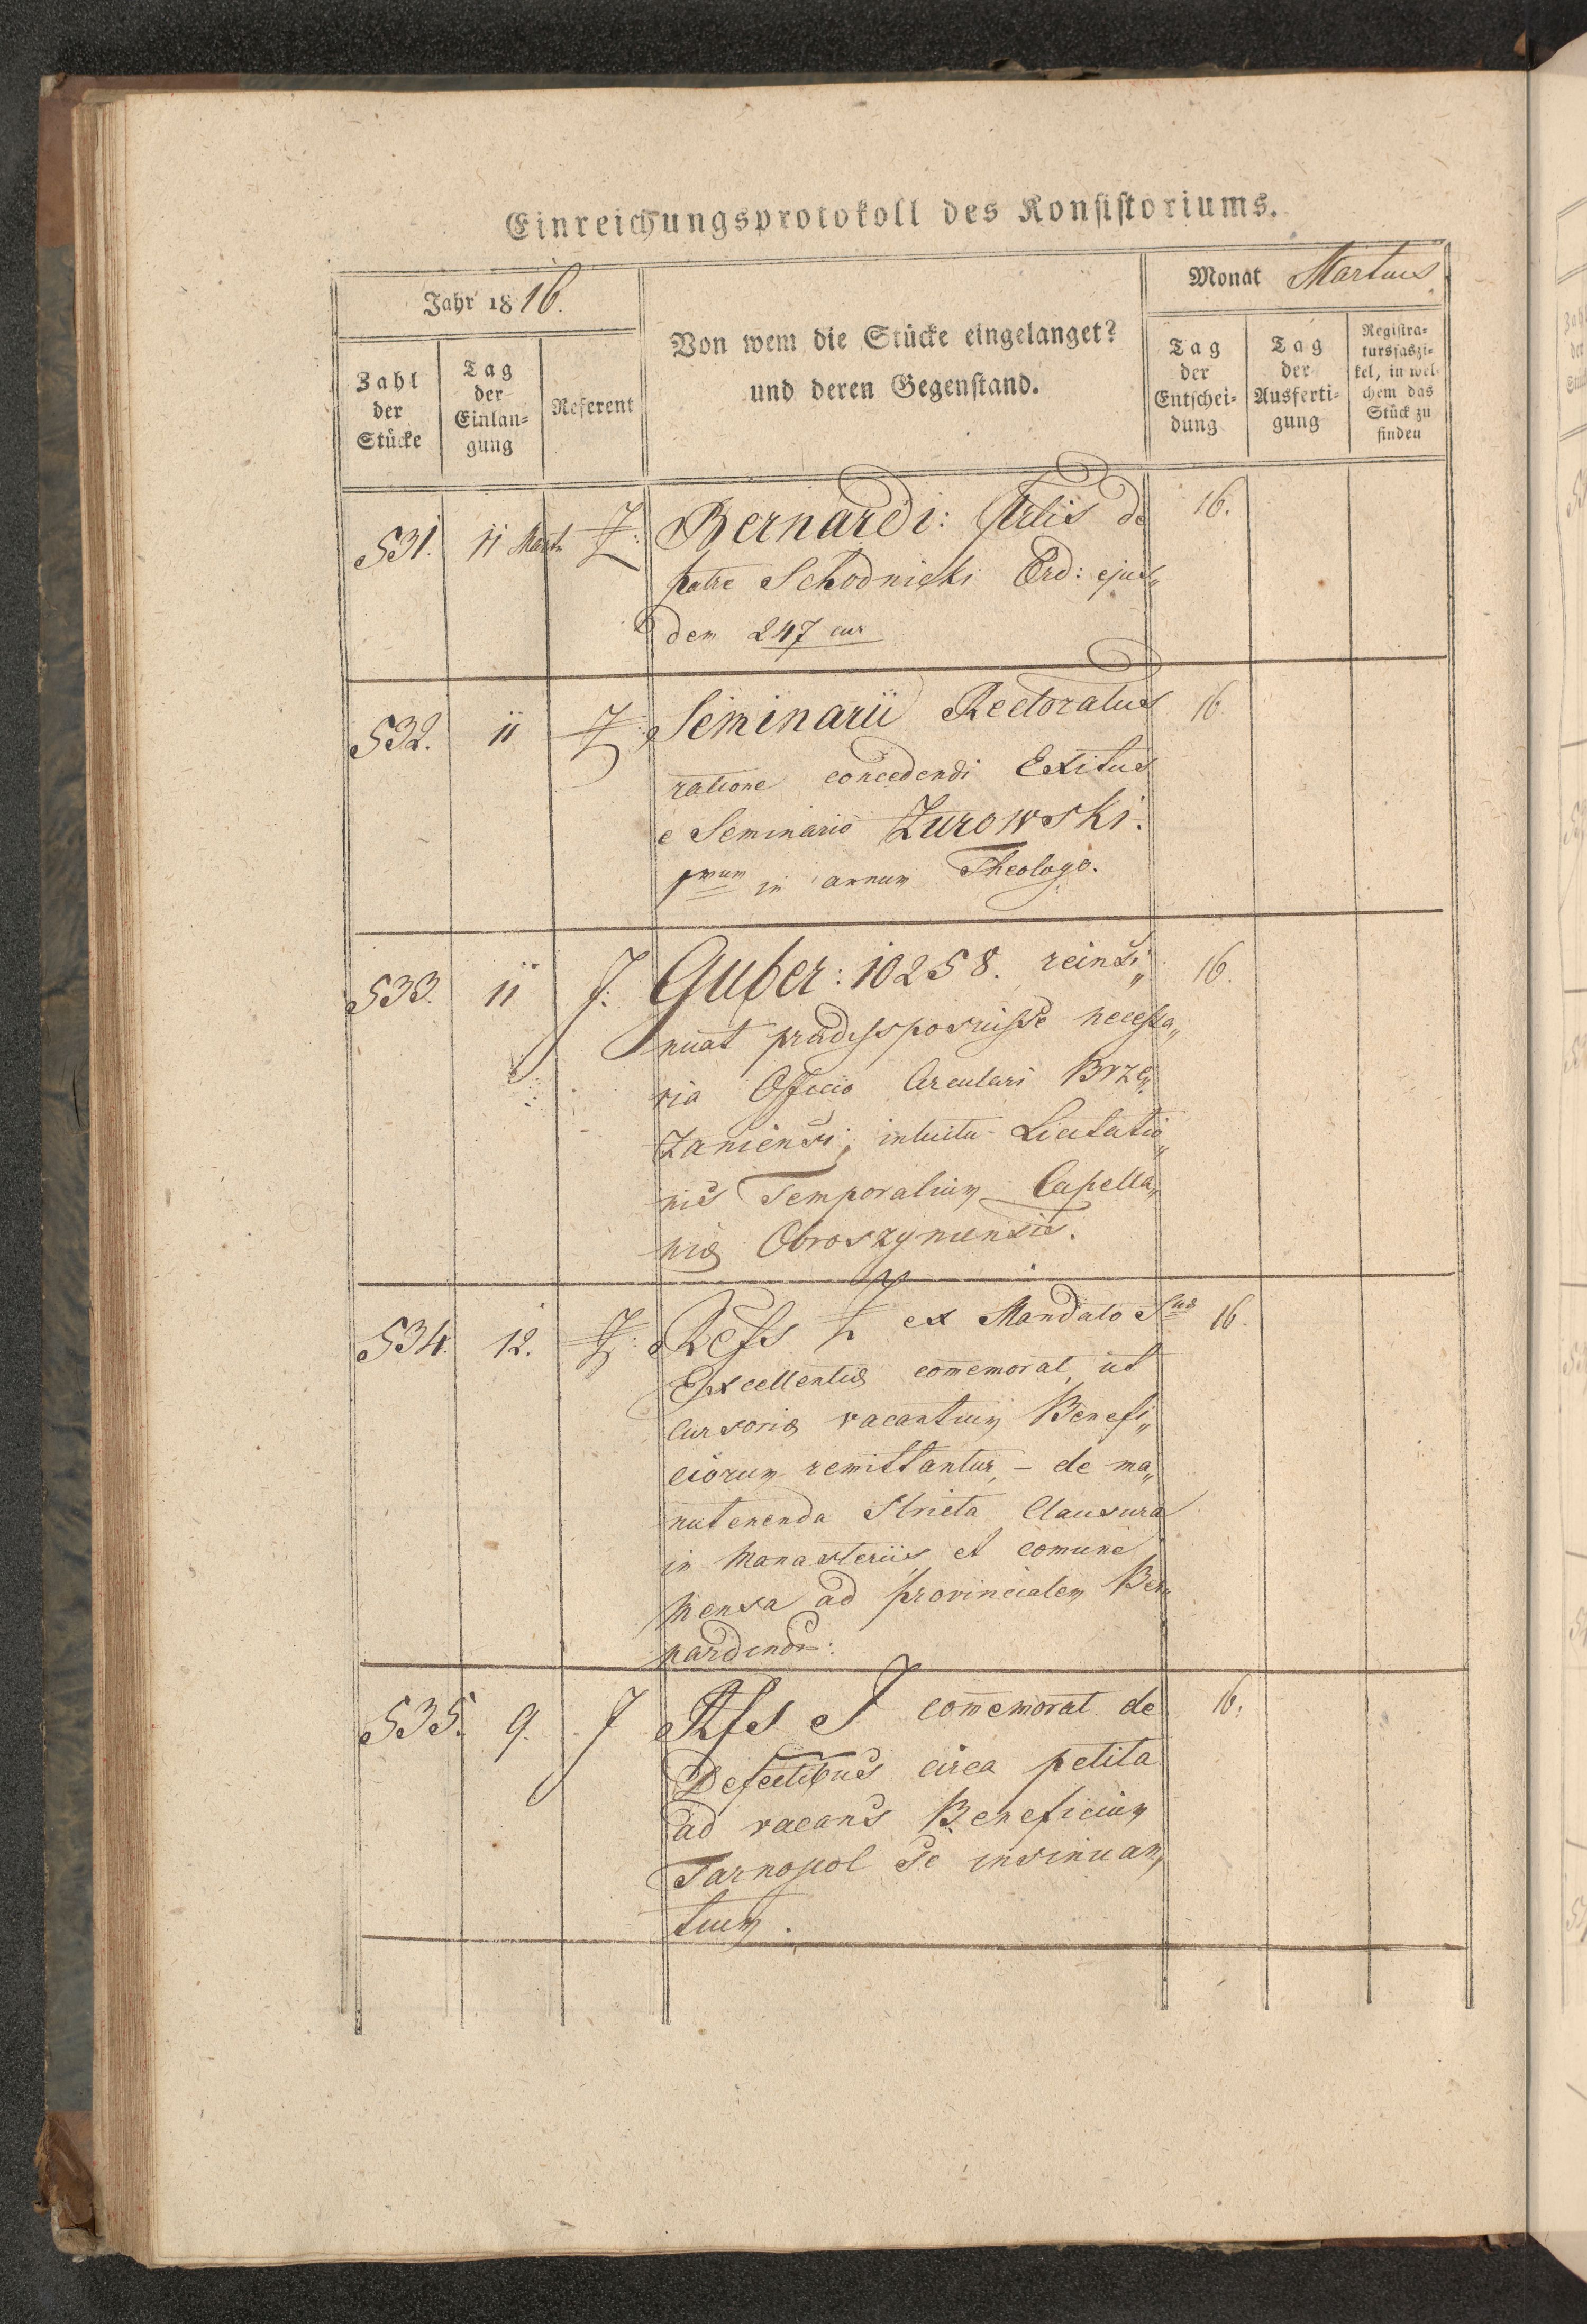 Einreichungsprotokoll des Konsistoriums.
Jahr 1816.
Monat Martius
Zahl der Stücke
Tag der Einlan=gung
Referent
Von wem die Stücke eingelanget?
und deren Gegenstand.
Tag der Entschei=dung
Tag der Ausferti=gung
Registra=tursfaszi=kel, in wel=chem das Stück zu finden
531. 11 Mart. Z: Bernardi: de 16.
patre Schodnicki Exd: ejus„
dem 247 cur
532. 11 Z: Seminarii Rectoratus 16
ratione concedendi Exitus
e Seminario Zurowski.
in annum Theologo.
533. 11 J: Guber: 10258. reinsi„ 16.
nuat prædisposuisse necessa„
ria Officio Circulari Brze„
zaniensi, intuitu Licitatio„
nis Temporalium Capella„
niæ Obroszynensis.
534. 12. Z: Refs Z ex Mandato Suæ 16.
Excellentiæ comemorat, ut
Cursoriæ vacantium Benefi„
ciorum remittantur, – de ma„
nutenenda Stricta Clausura
in Monasteriis et comune
mensa ad provincialem Ber„
nardinor:
535. 9. J Rfs J comemorat de 16.
Defectibus circa petita
ad vacans Beneficium
Tarnopol se insinuan„
tium.